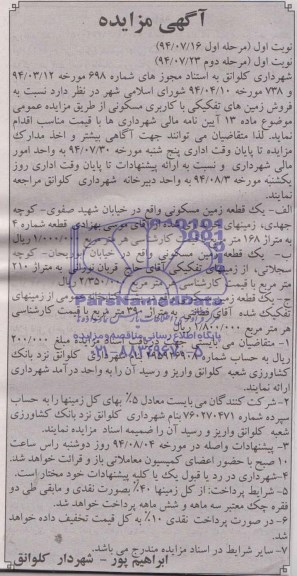 آگهی مزایده
نوبت اول (مرحله اول ۹۴/۰۷/۱۶)
نوبت اول (مرحله دوم ۹۴/۰۷/۲۳)
شهرداری کلوانق به استناد مجوز های شماره ۶۹۸ مورخه ۹۴/۰۳/۱۲
و ۷۳۸ مورخه ۹۴/۰۴/۱۰ شورای اسلامی شهر در نظر دارد نسبت به
فروش زمین های تفکیکی با کاربری مسکونی از طریق مزایده عمومی
موضوع ماده ۱۳ آیین نامه مالی شهرداری ها با قیمت مناسب اقدام
نماید. لذا متقاضیان می توانند جهت آگاهی بیشتر و اخذ مدارک
مزایده تا پایان وقت اداری پنج شنبه مورخه ۹۴/۰۷/۳۰ به واحد امور
مالی شهرداری و نسبت به ارائه پیشنهادات تا پایان وقت اداری روز
یکشنبه مورخه ۹۴/۰۸/۳ به واحد دبیرخانه شهرداری کلوانق مراجعه
نمایند.
الف- یک قطعه زمین مسکونی واقع در خیابان شهید صفوی- کوچه
جهدی، زمینهای موسی بهزادی قطعه شماره ۴
به متراژ ۱۶۸ متر مربع کارشناسی هر متر ۱/۰۰۰/۰۰۰ ریال
ب- یک قطعه زمین مسکونی واقع در خیابان ابوریحان- کوچه
سجلاتی، از زمینهای تفکیکی آقای حاج قربان به متراژ ۲۱۰
متر مربع با قیمت کارشناسی هر متر مربع ۲/۳۵۰/۰۰۰
ج- یک قطعه زمین از زمینهای
تفکیک شده آقای به متراژ ۳۹۰ متر مربع با قیمت کارشناسی
هر متر مربع ۱/۸۰۰/۰۰۰ ریال
۱- متقاضیان می بایستی جهت دریافت اسناد مزایده مبلغ ۲۰۰/۰۰۰
ریال به حساب شماره کلوانق نزد بانک
کشاورزی شعبه کلوانق واریز و رسید آن را به واحد درآمد شهرداری
ارائه نمایند.
۲- شرکت کنندگان می بایست معادل ۵% بهای کل زمینها را به حساب
سپرده شماره ۷۶۰۲۷۰۴۷۱ بنام شهرداری کلوانق نزد بانک کشاورزی
شعبه کلوانق واریز و رسید آن را ضمیمه اسناد مزایده نمایند.
۳- پیشنهادات واصله در مورخه ۹۴/۰۸/۰۴ روز دوشنبه راس ساعت
۱۰ صبح با حضور اعضای کمیسون معاملاتی باز و قرائت خواهد شد.
۴- شهرداری در رد یا قبول یک یا کلیه پیشنهادات خود مختار است.
۵- شرایط پرداخت: از کل زمینها ۴۰% بصورت نقدی و مابقی طی دو
فقره چک معتبر سه ماهه و شش ماهه پرداخت خواهد شد.
۶- در صورت پرداخت نقدی ۱۰% به کل قیمت تخفیف داده خواهد
شد.
۷- سایر شرایط در اسناد مزایده مندرج می باشد.
ابراهیم پور - شهردار کلوانق
ParsNamadData
۰۲۱-۸۸۳۴۹۶۷۰-۵